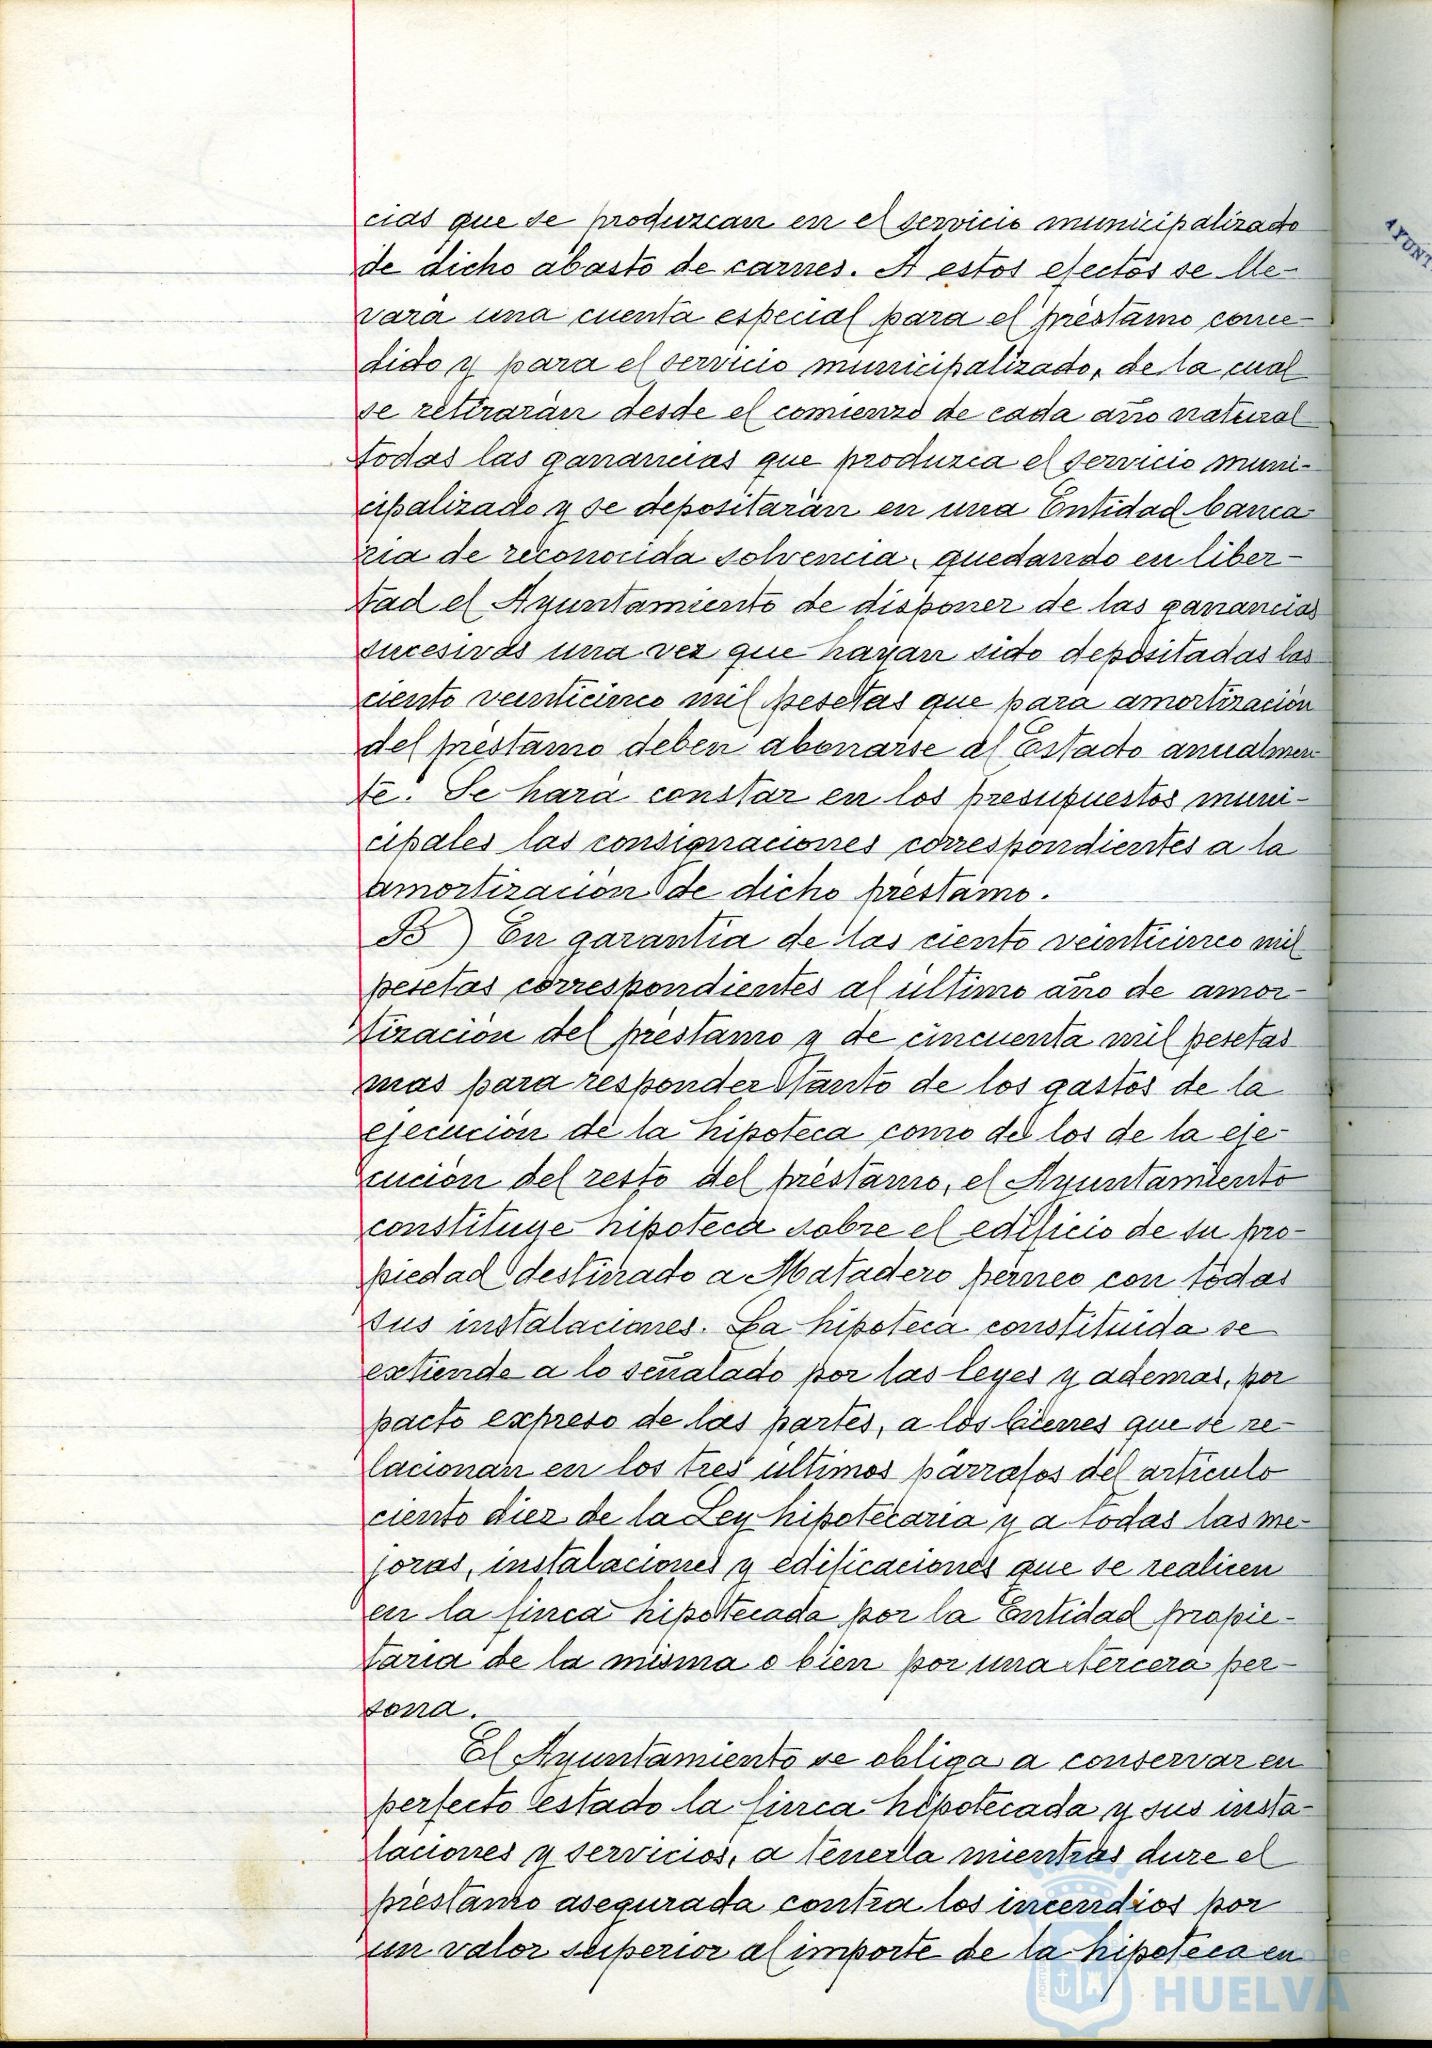 cias que se produzcan en el servicio municipalizado
de dicho abasto de carnes. A estos efectos se lle-
vará una cuenta especial para el préstamo conce-
dido y para el servicio municipalizado, de la cual
se retirarán desde el comienzo de cada año natural
todas las ganancias que produzca el servicio muni-
cipalizado y se depositarán en una Entidad banca
ria de reconocida solvencia, quedando en liber-
tad el Ayuntamiento de disponer de las ganancias
sucesivas una vez que hayan sido depositadas las
ciento veinticinco mil pesetas que para amortización
del préstamo deben abonarse al Estado anualmen-
te. Se hará constar en los presupuestos muni-
cipales las consignaciones correspondientes a la
amortización de dicho préstamo.
B) En garantía de las ciento veinticinco mil
pesetas correspondientes al último año de amor-
tización del préstamo y de cincuenta mil pesetas
mas para responder tanto de los gastos de la
ejecución de la hipoteca como de los de la eje-
cución del resto del préstamo, el Ayuntamiento
constituye hipoteca sobre el edificio de su pro-
piedad destinado a Matadero pérneo con todas
sus instalaciones. La hipoteca constituida se
extiende a lo señalado por las leyes y ademas, por
pacto expreso de las partes, a los bienes que se re-
lacionan en los tres últimos párrafos del artículo
ciento diez de la Ley hipotecaria y a todas las me-
joras, instalaciones y edificaciones que se realicen
en la finca hipotecada por la Entidad propie-
taria de la misma o bien por una tercera per-
sona.
El Ayuntamiento se obliga a conservar en
perfecto estado la finca hipotecada y sus insta-
laciones y servicios, a tenerla mientras dure el
préstamo asegurada contra los incendios por
un valor superior al importe de la hipoteca en
AYUNT
HUELVA